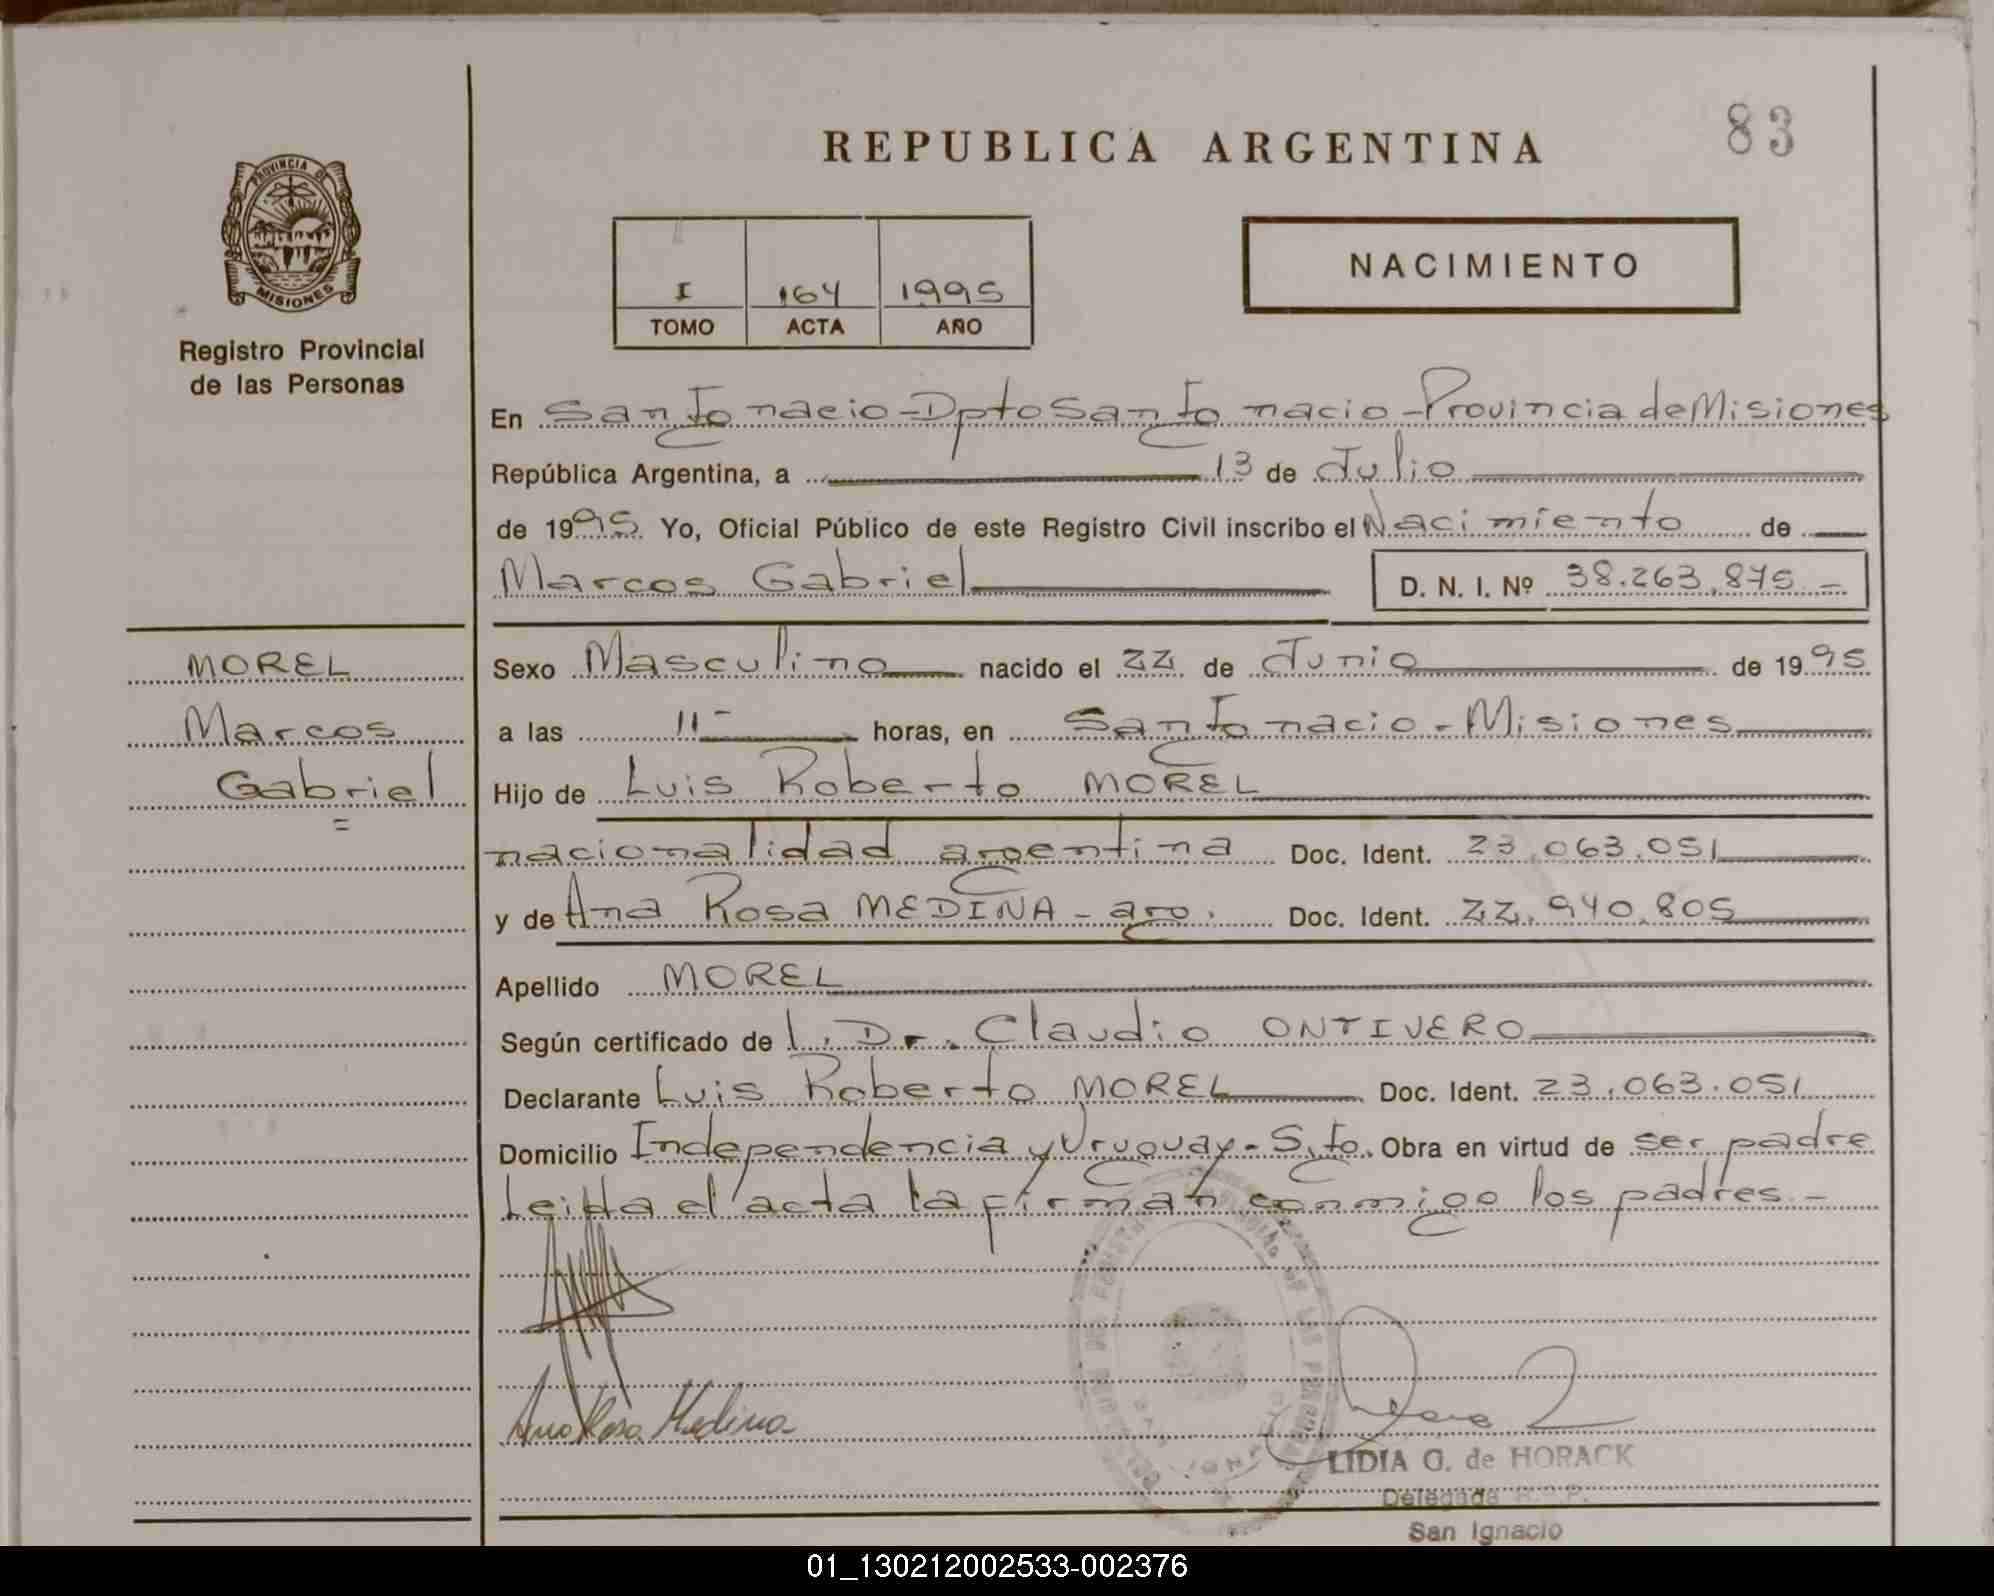 REPUBLICA ARGENTINA
83
PROVINCIA DE
MISIONES
Registro Provincial
de las Personas
I 164 1995
TOMO ACTA AÑO
NACIMIENTO
En San Ignacio - Dpto San Ignacio - Provincia de Misiones
República Argentina, a 13 de Julio
de 1995. Yo, Oficial Público de este Registro Civil inscribo el Nacimiento de
Marcos Gabriel D. N. I. Nº 38.263.875.-
MOREL
Marcos
Gabriel
=
Sexo Masculino nacido el 22 de Junio de 1995
a las 11- horas, en San Ignacio - Misiones
Hijo de Luis Roberto MOREL
nacionalidad argentina Doc. Ident. 23.063.051
y de Ana Rosa MEDINA - arg. Doc. Ident. 22.940.805
Apellido MOREL
Según certificado de l. Dr. Claudio ONTIVERO
Declarante Luis Roberto MOREL Doc. Ident. 23.063.051
Domicilio Independencia y Uruguay - S. Ig. Obra en virtud de ser padre
Leída el acta la firman conmigo los padres.-
Ana Rosa Medina
LIDIA G. de HORACK
Delegada R.C.P.
San Ignacio
01_130212002533-002376